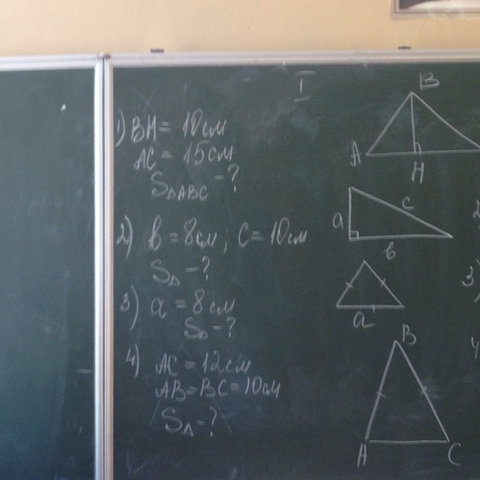 I
1) BH = 10см
AC = 15см
S△ABC - ?
2) в = 8см; c = 10см
S△ - ?
3) a = 8см
S△ - ?
4) AC = 12см
AB = BC = 10см
S△ - ?
B
A
H
a
c
в
a
B
A
C
3)